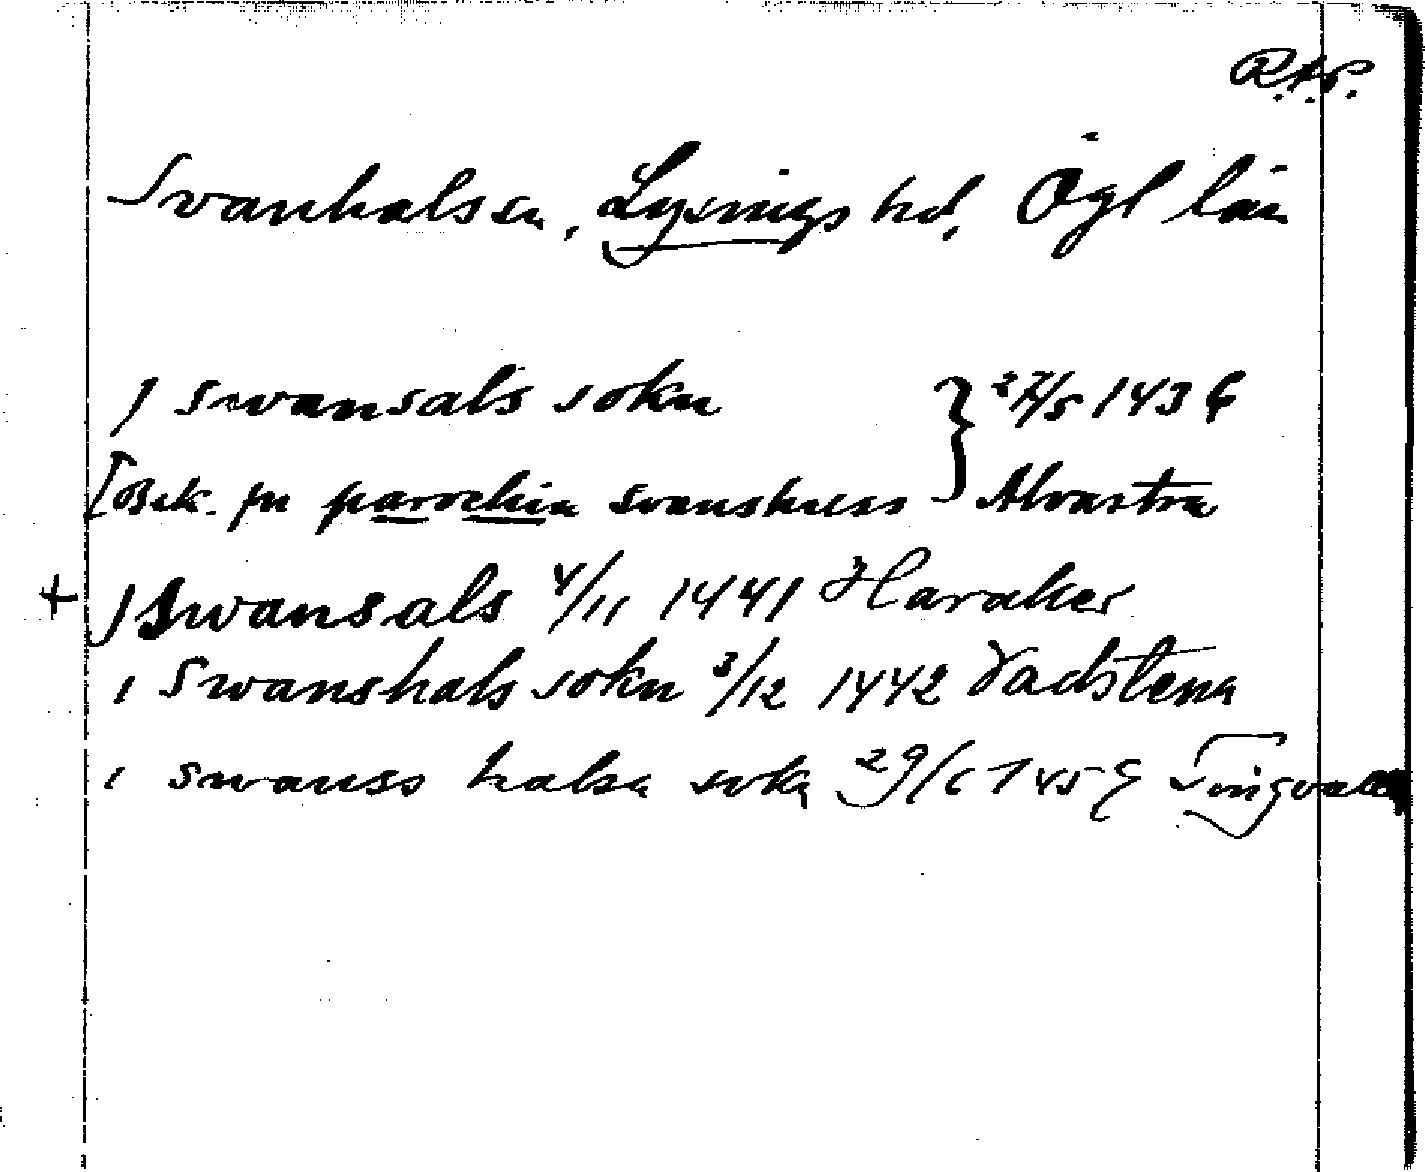 R.A.P.
Svanhals sn, Lysings hd, Ögl län
J swansals sokn } 27/5 1436
[Bak. på parochia svanshness Alvastra
+ J Swansals 4/11 1441 Haraker
i Swanshals sokn 3/12 1442 Vadstena
i swanss halsa sokn 29/6 1459 Tingvall